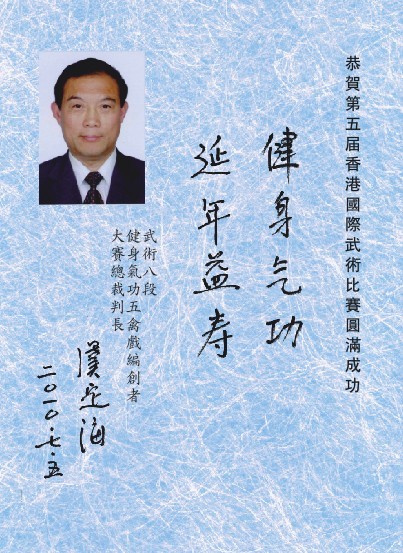 恭賀第五届香港國際武術比賽圓滿成功
健身气功
延年益寿
武術八段
健身氣功五禽戲編創者
大賽總裁判長
虞定海
二〇一〇.七.五